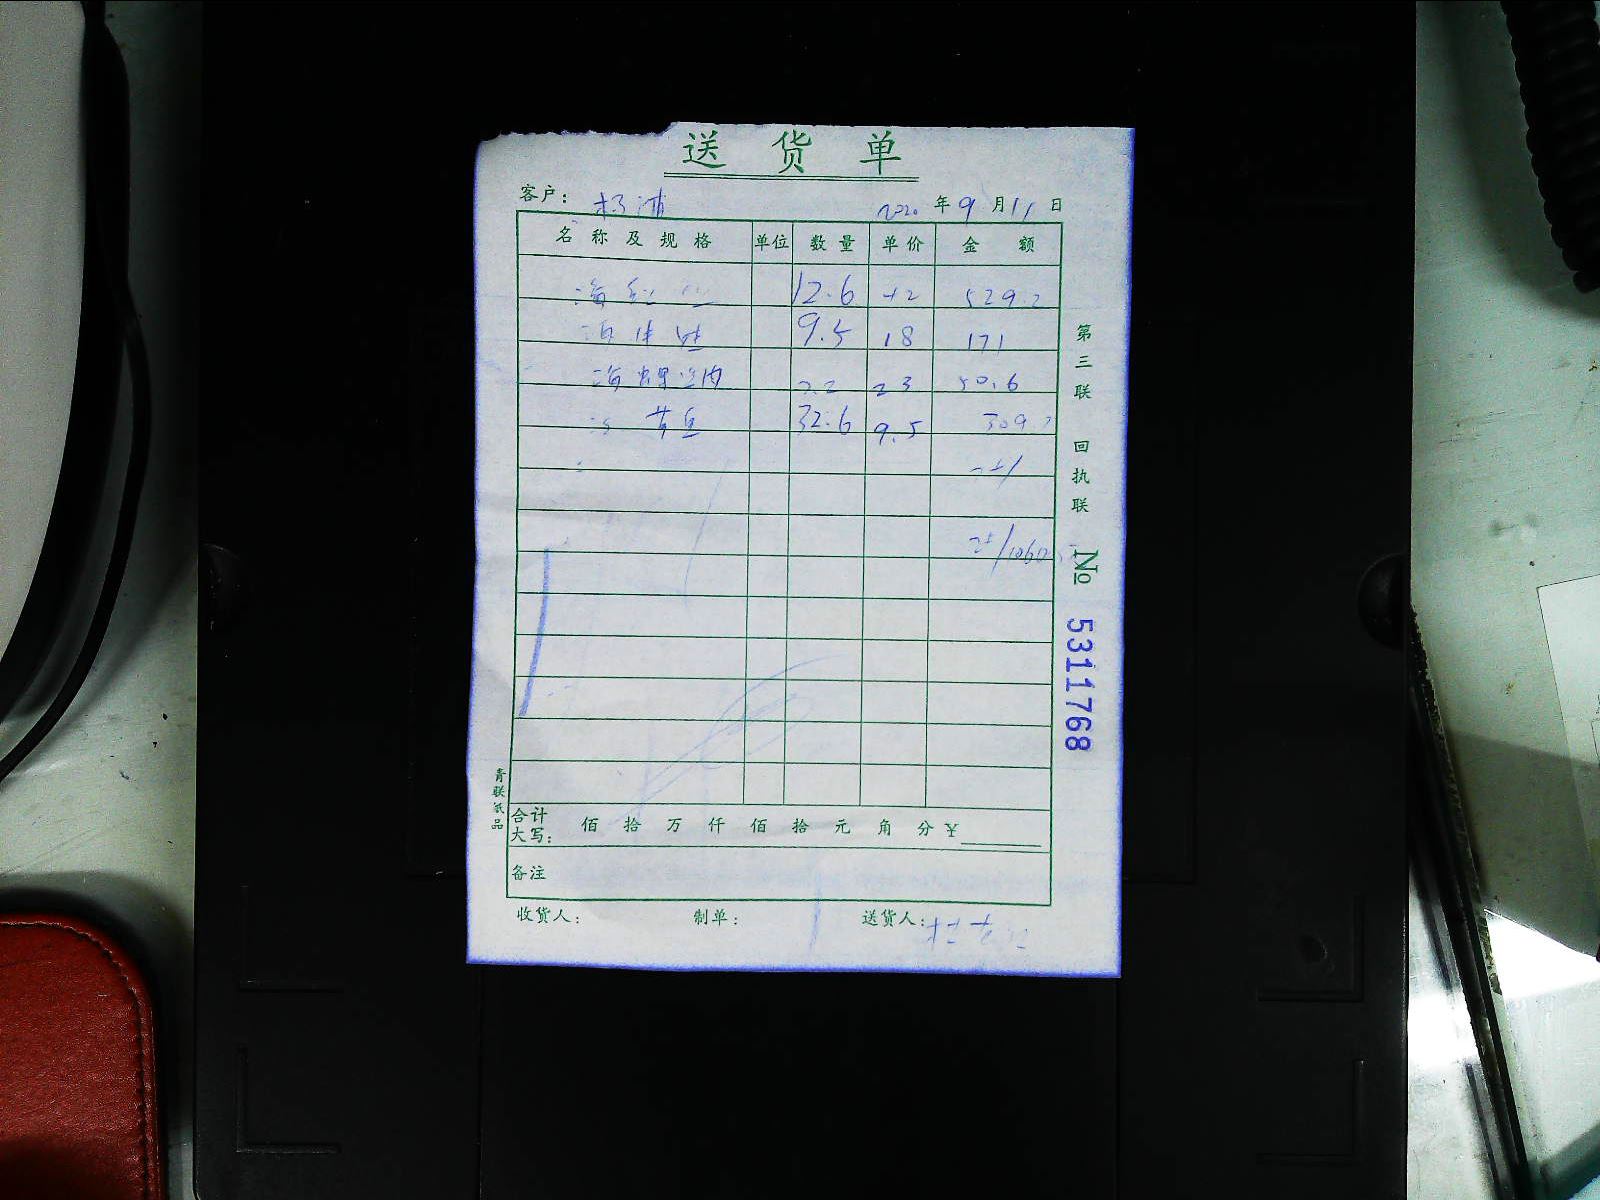 送货单
客户: 2020年9月11日
名称及规格 单位 数量 单价 金额
海 12.6 42 529.2
海 9.5 18 171
海螺肉 2.2 23 50.6
黄鱼 32.6 9.5 309.7
计/1060.5
合计大写: 佰 拾 万 仟 佰 拾 元 角 分 ¥
备注
收货人: 制单: 送货人:
第三联 回执联 No 5311768
青联纸品